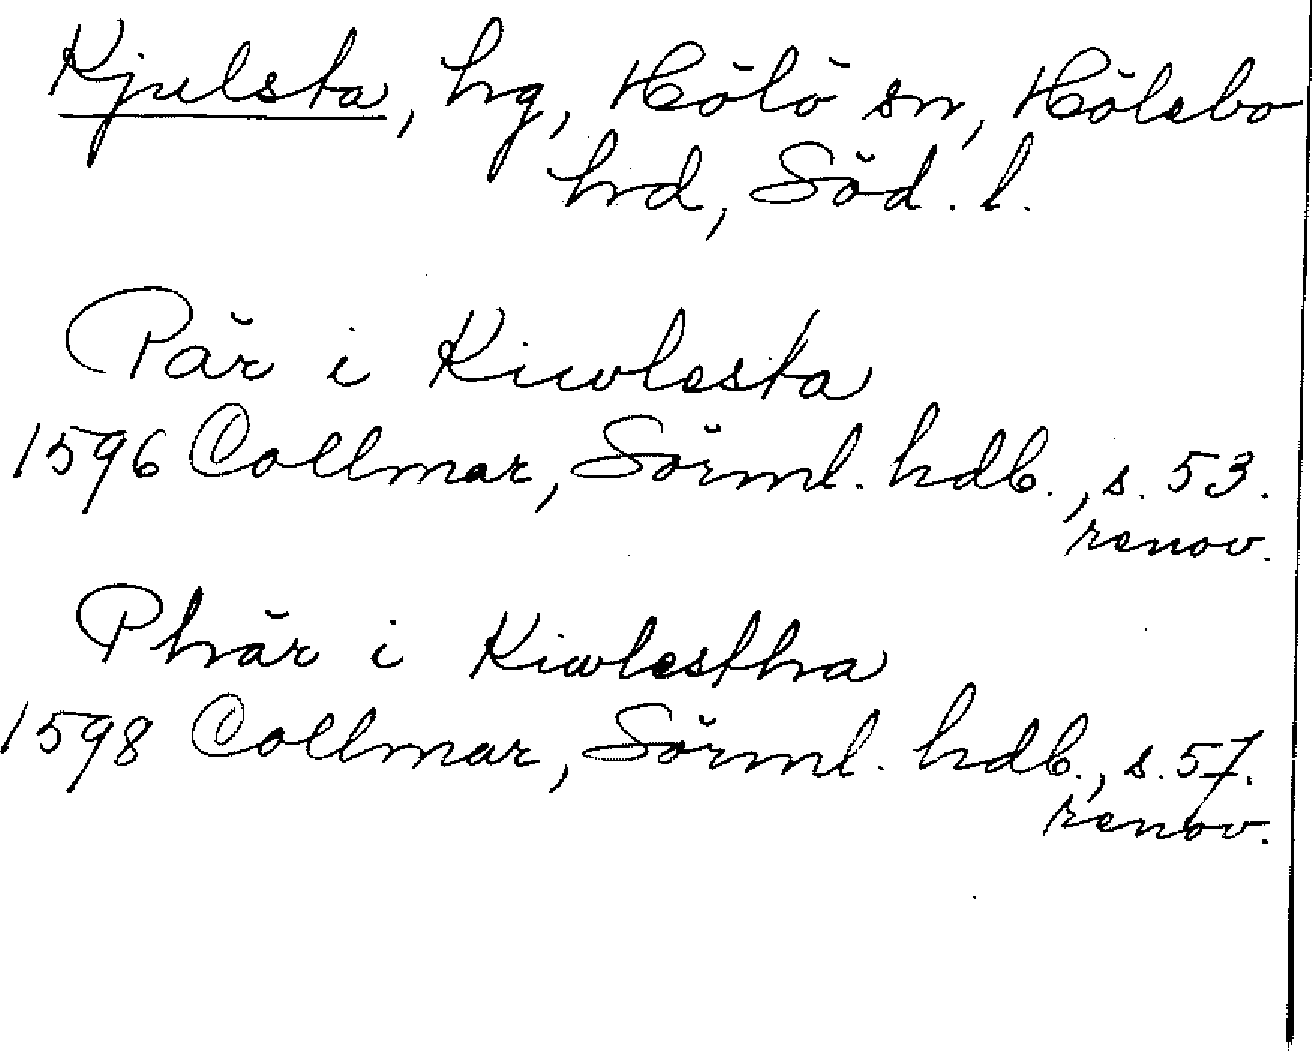 Kjulsta, hg, Hölö sn, Hölebo
hrd, Söd. l.
Pär i Kiwlesta
1596 Collmar, Sörml. hdb., s. 53.
renov.
Phär i Kiwlestha
1598 Collmar, Sörml. hdb., s. 57.
renov.